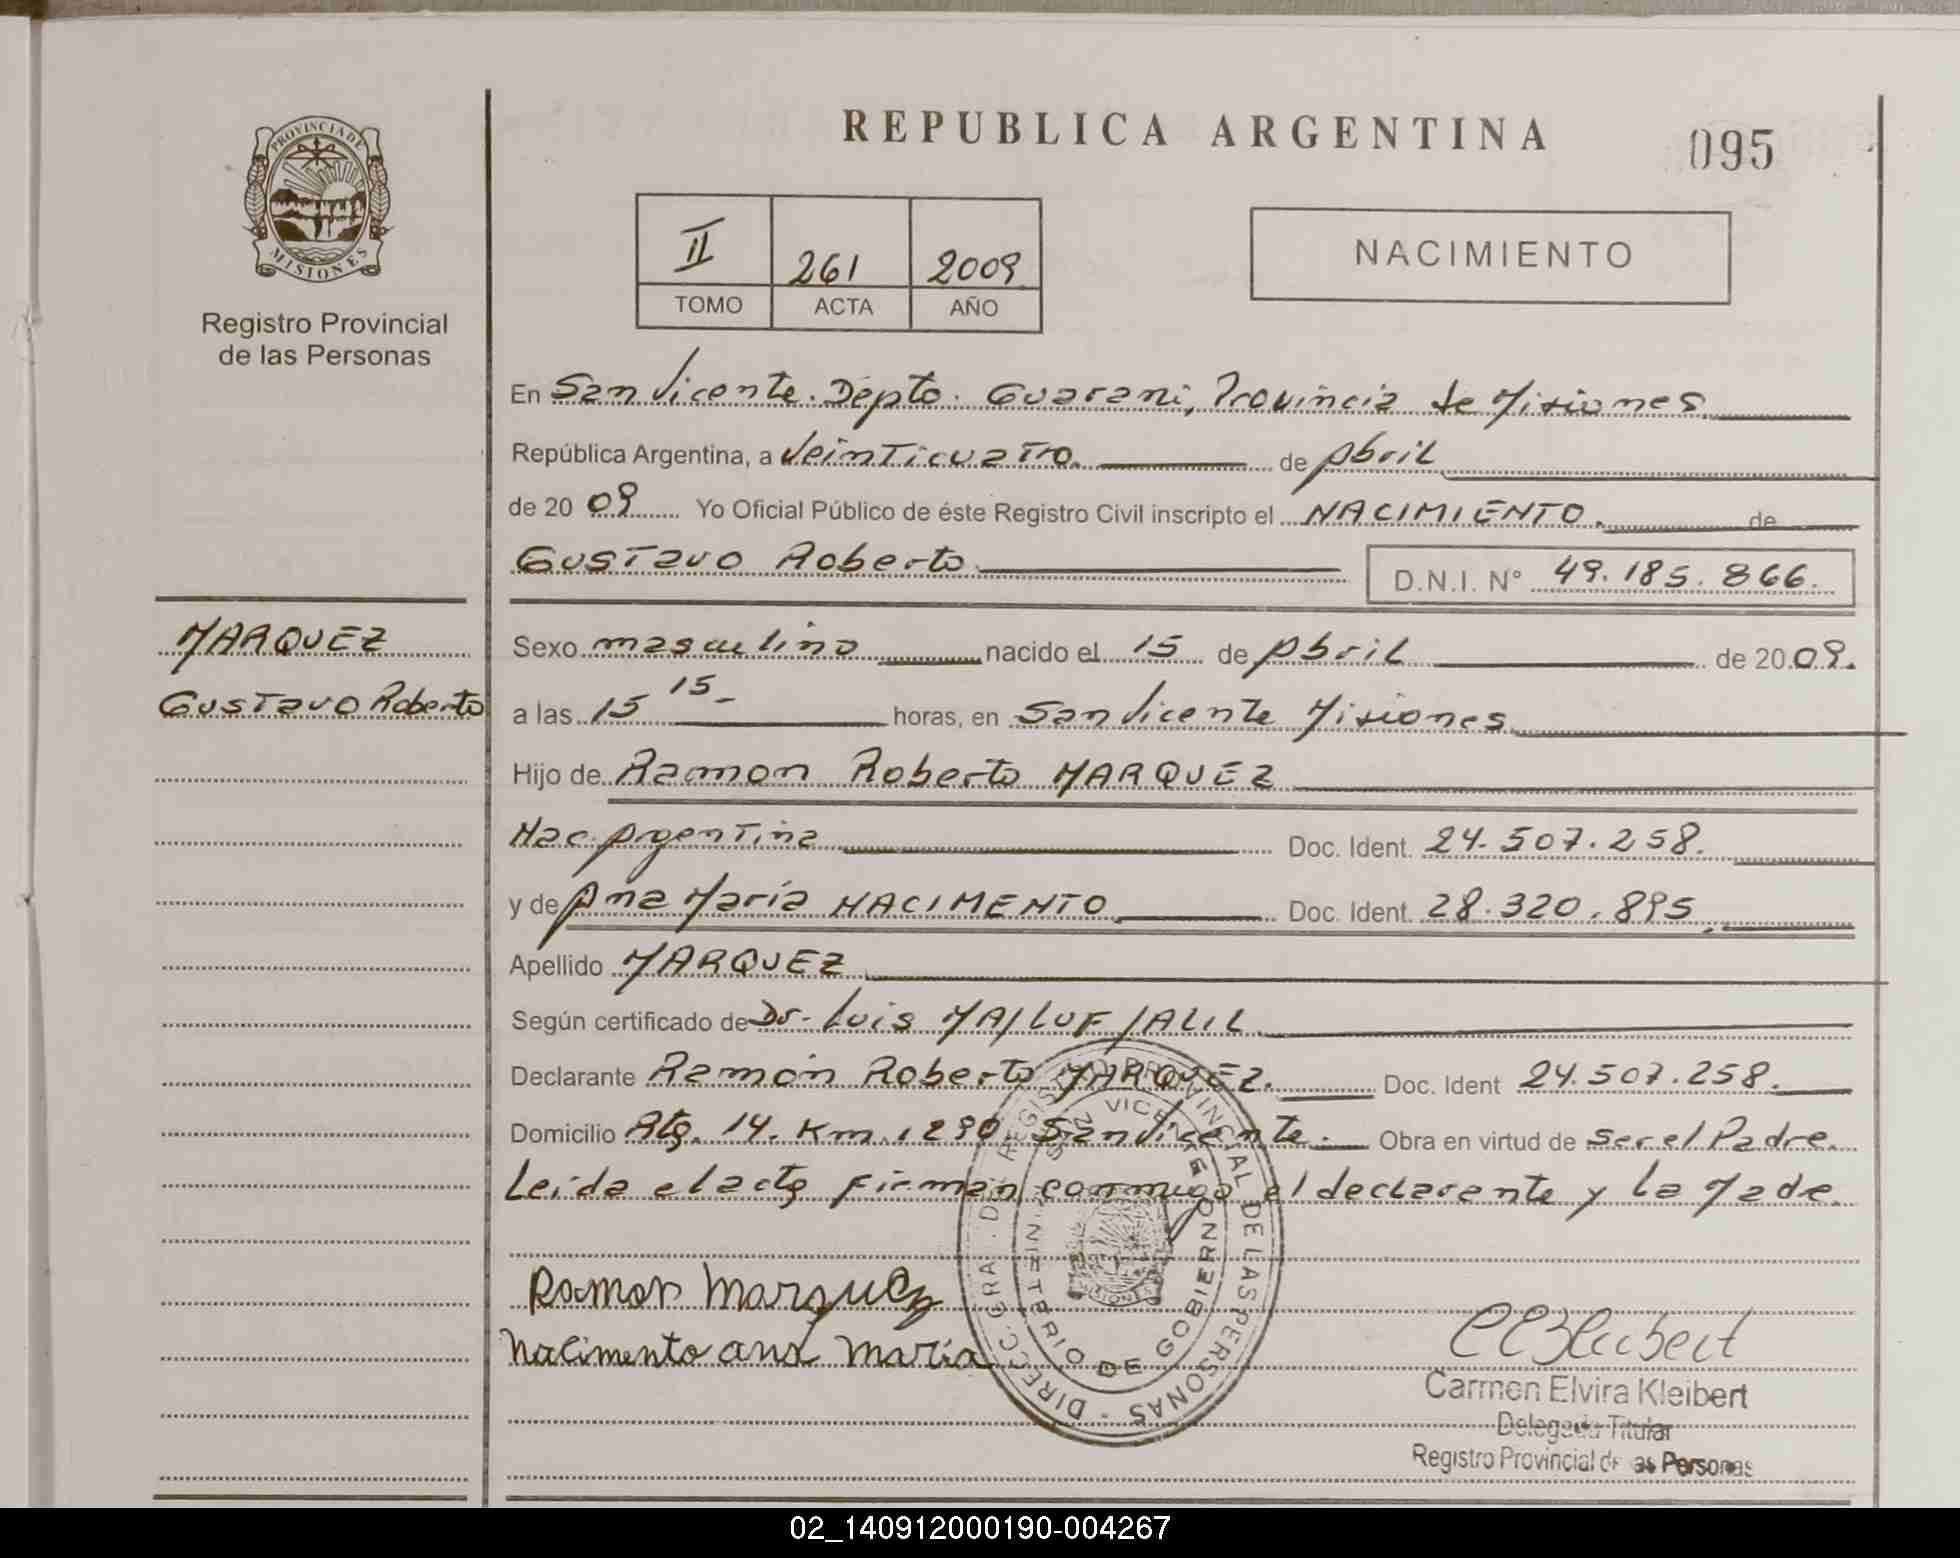 PROVINCIA DE
MISIONES
Registro Provincial
de las Personas
REPUBLICA ARGENTINA
095
II 261 2009
TOMO ACTA AÑO
NACIMIENTO
En San Vicente. Depto. Guarani, Provincia de Misiones
República Argentina, a Veinticuatro. de Abril
de 20 09 Yo Oficial Público de éste Registro Civil inscripto el NACIMIENTO. de
Gustavo Roberto D.N.I. N° 49.185.866.
MARQUEZ
Gustavo Roberto
Sexo masculino nacido el 15 de Abril de 20 09.
a las 15 15- horas, en San Vicente Misiones
Hijo de Ramon Roberto MARQUEZ
Nac. Argentina Doc. Ident. 24.507.258.
y de Ana María NACIMENTO Doc. Ident. 28.320.895
Apellido MARQUEZ
Según certificado de Dr. Luis MAJLUF JALIL
Declarante Ramón Roberto MARQUEZ. Doc. Ident 24.507.258.
Domicilio Rta. 14. Km. 1290 San Vicente. Obra en virtud de ser el Padre.
Leida el acta firman conmigo el declarante y la Made.
Ramon Marquez
Nacimento ana Maria
DIRECC. GRAL. DEL REGISTRO PROVINCIAL DE LAS PERSONAS -
SAN VICENTE
MINISTERIO DE GOBIERNO
MISIONES
Carmen Elvira Kleibert
Delegada Titular
Registro Provincial de las Personas
02_140912000190-004267